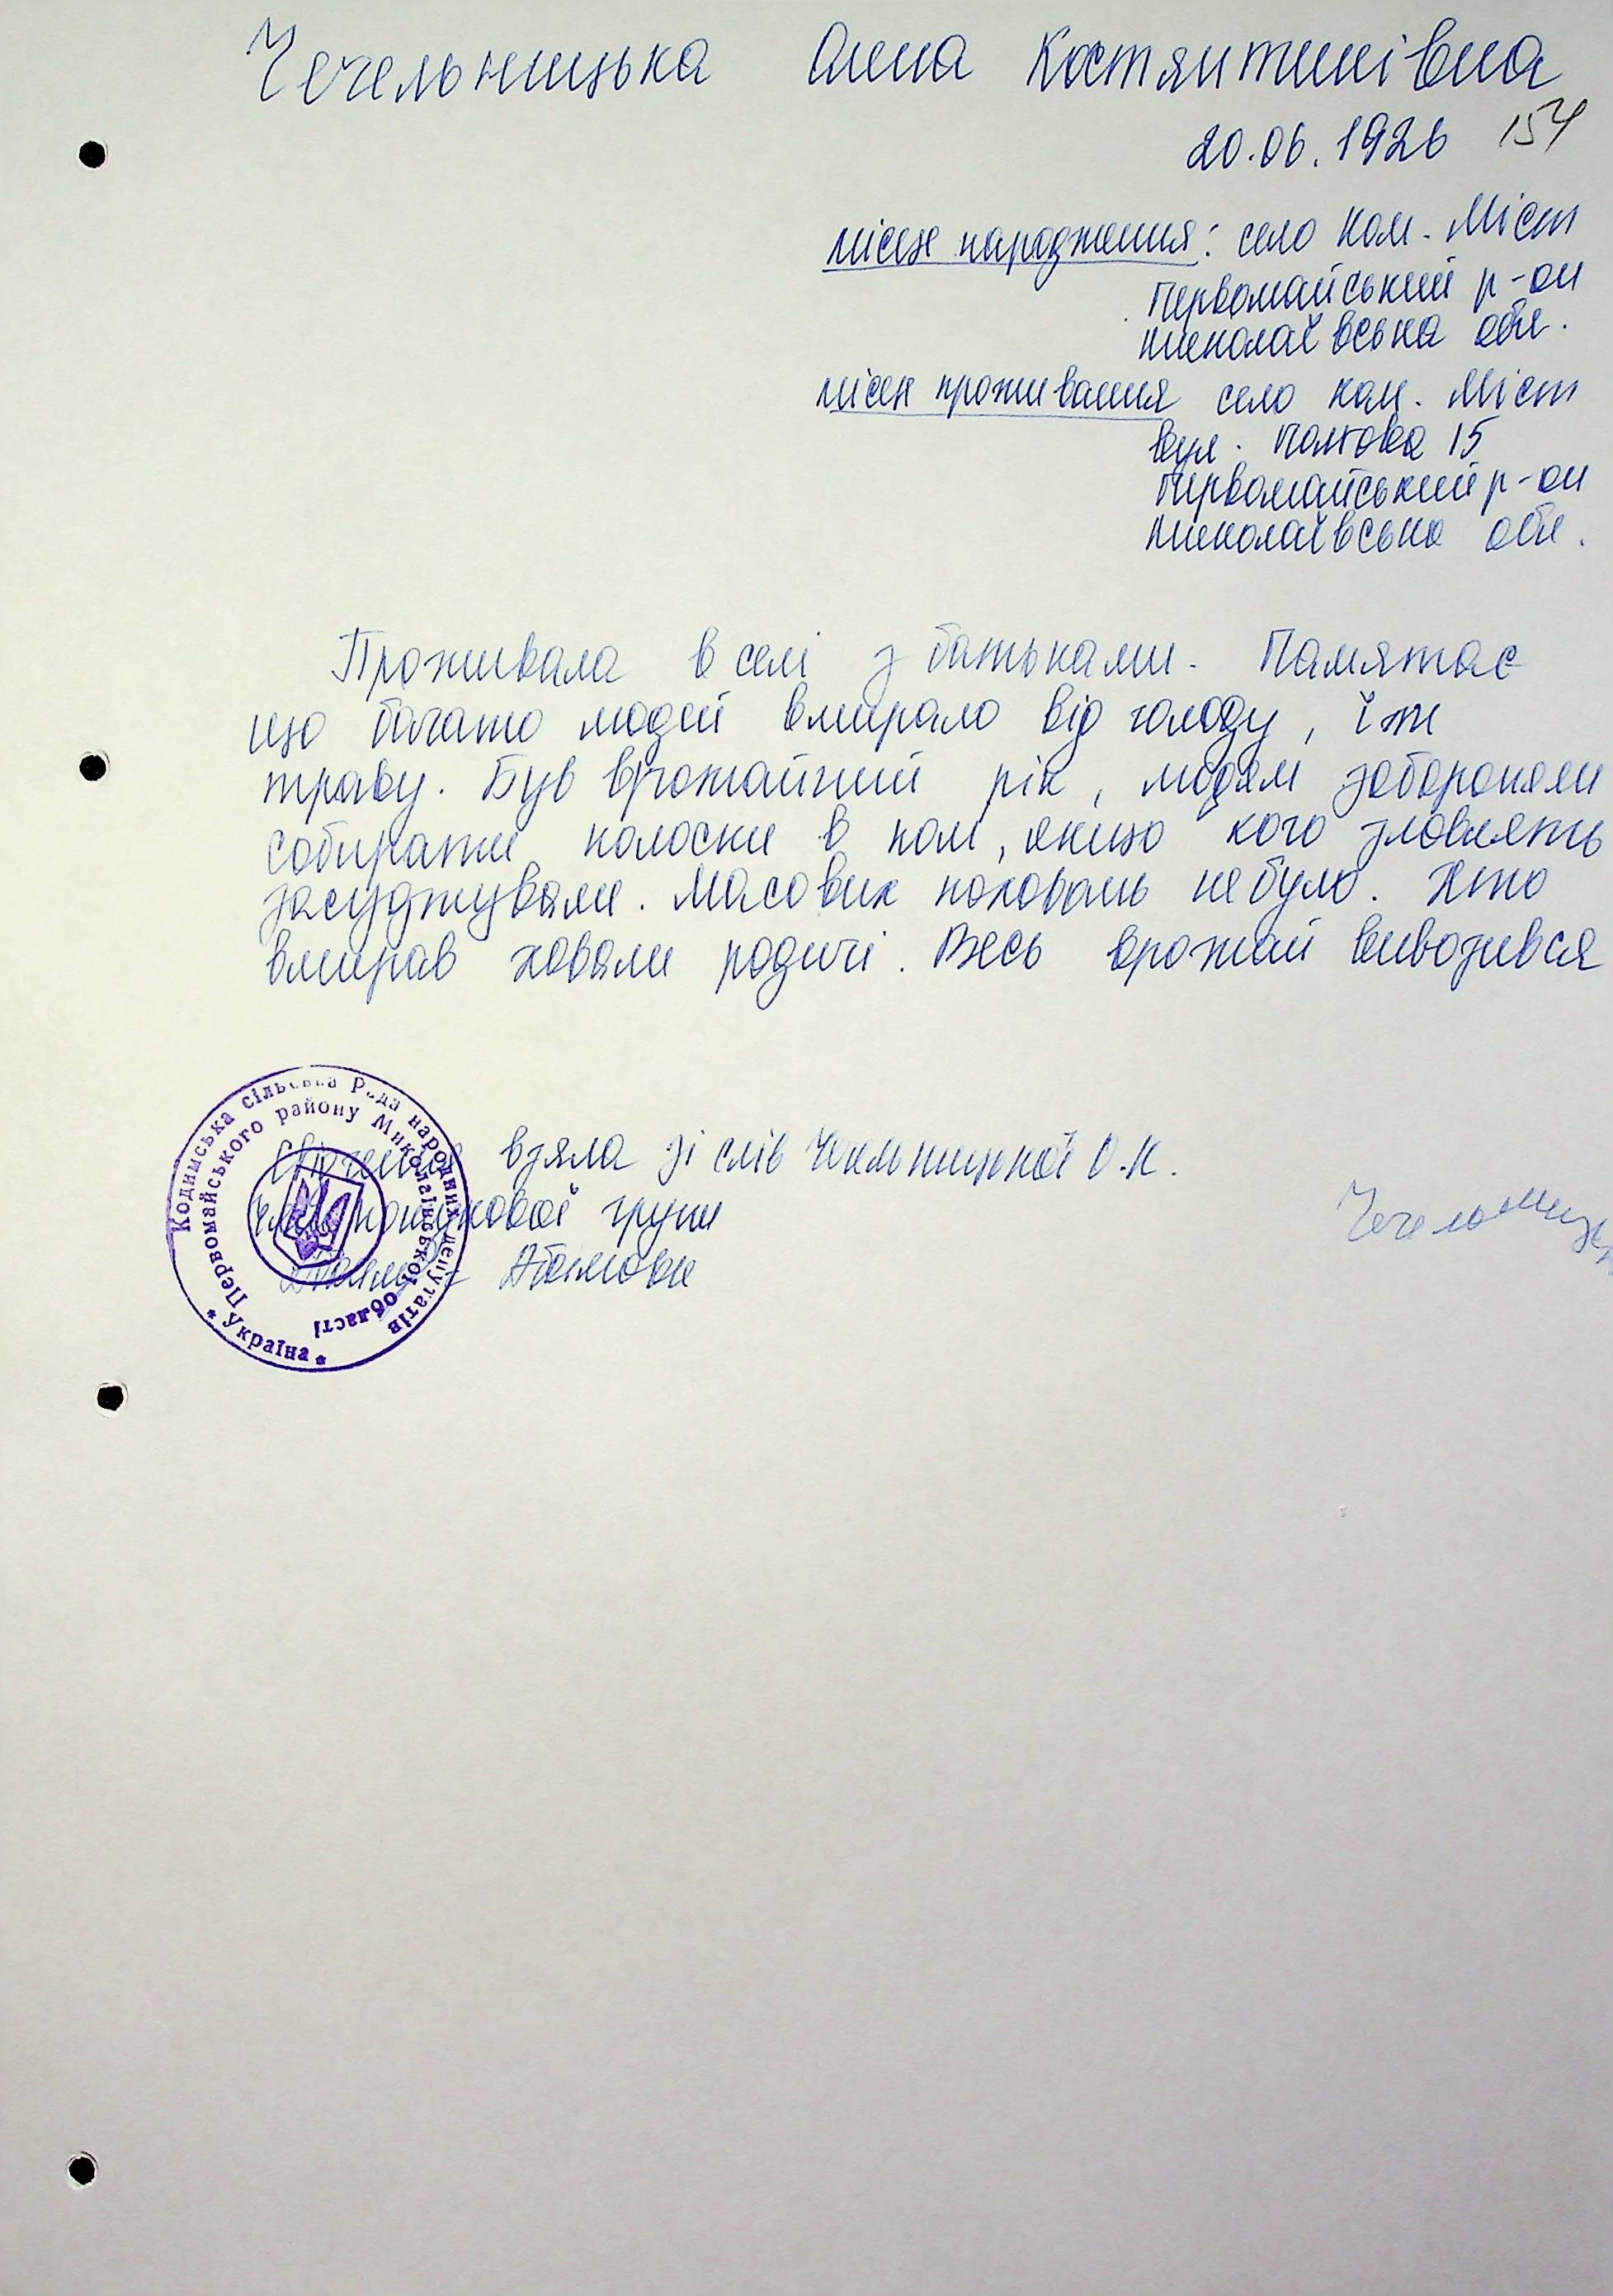 Чечельницька Олена Костянтинівна
20.06.1926 154
місце народження: село Кам. Міст
Первомайський р-он
Миколаївська обл.
місце проживання село Кам. Міст
вул. Польова 15
Первомайський р-он
Миколаївська обл.
Проживала в селі з батьками. Памятає
що багато людей вмирало від голоду, їли
траву. Був врожайний рік, людям забороняли
собирати колоски в полі, якщо кого зловлять
засуджували. Масових поховань не було. Хто
вмирав ховали родичі. Весь врожай вивозився
Свідчення взяла зі слів Чечельницької О.К.
член пошукової групи
Абалмова
Чечельницьк
Кодимська сільська Рада народних депутатів
Первомайського району Миколаївської області
* Україна *